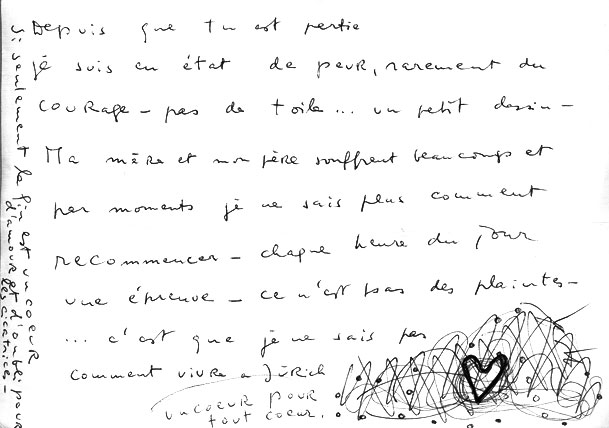 Depuis que tu est partie
je suis en état de peur, rarement du
courage - pas de toile... un petit dessin -
Ma mère et mon père souffrent beaucoup et
par moments je ne sais plus comment
recommencer - chaque heure du jour
une épreuve - ce n'est pas des plaintes -
... c'est que je ne sais pas
comment vivre a Zürich
un coeur pour
tout coeur.
Si seulement la fin est un coeur
d'amour et d'oubli pour
les cicatrices -